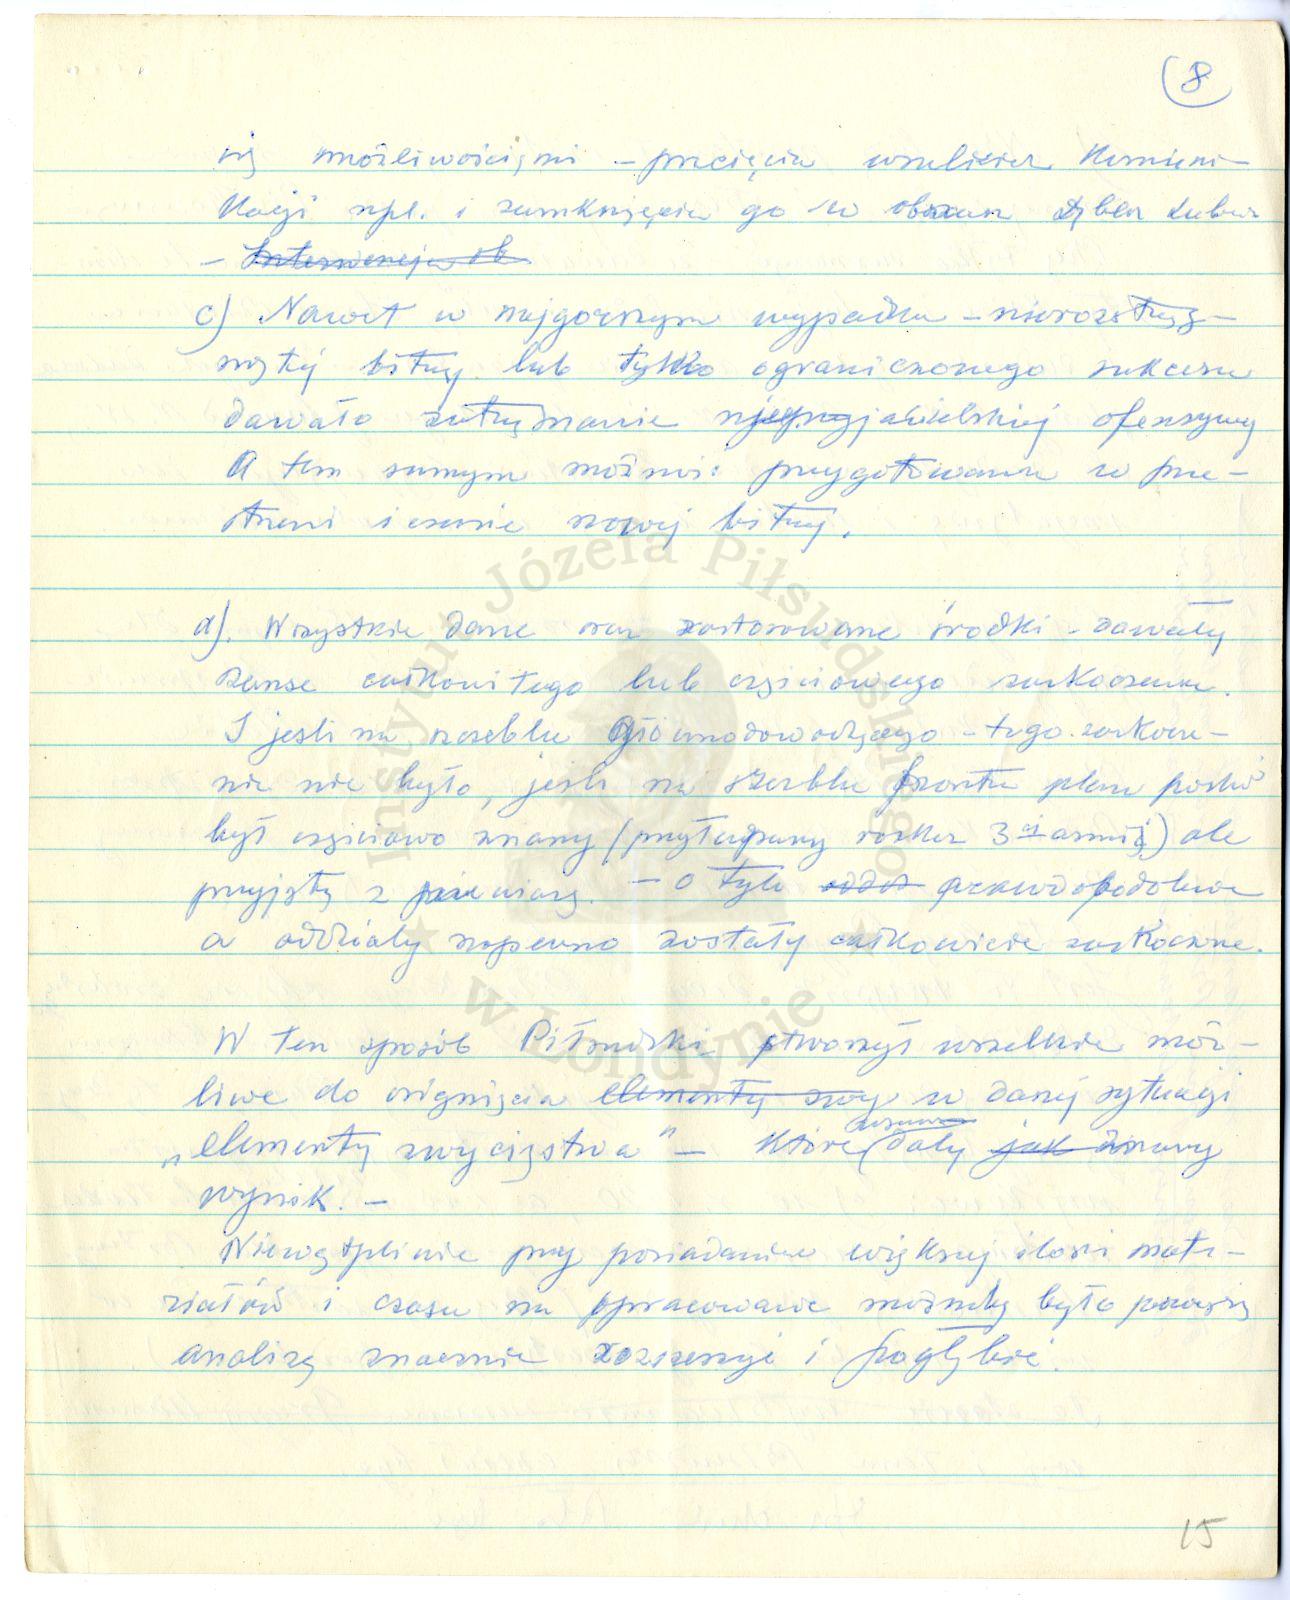 8
możliwościami – przecięcia wszelkiej komuni-
kacji npl. i zamknięcia go w
– Interwencja ob
c) Nawet w najgorszym wypadku – nierozstrzyg-
niętej bitwy lub tylko ograniczonego sukcesu
dawało zatrzymanie nieprzyjacielskiej ofensywy
A tem samym możność przygotowania w prze-
strzeni i czasie nowej bitwy.
d). Wszystkie dane oraz zastosowane środki – dawały
szanse całkowitego lub częściowego zaskoczenia.
I jeśli na szczeblu Głównodowodzącego – tego zaskocze-
nia nie było, jeśli na szczeblu frontu plan polski
był częściowo znany (przyłapany rozkaz 3ej armii) ale
przyjęty z – o tyle prawdopodobnie
a oddziały napewno zostały całkowicie zaskoczone.
W ten sposób Piłsudski stworzył wszelkie moż-
liwe do osiągnięcia elementy zwy w danej sytuacji
„elementy zwycięstwa" – które dały jak znany
wynik. –
Niewątpliwie przy posiadaniu większej ilości mate-
riałów i czasu na opracowanie możnaby było powyższą
analizę znacznie rozszerzyć i pogłębić.
15
Instytut Józefa Piłsudskiego
w Londynie